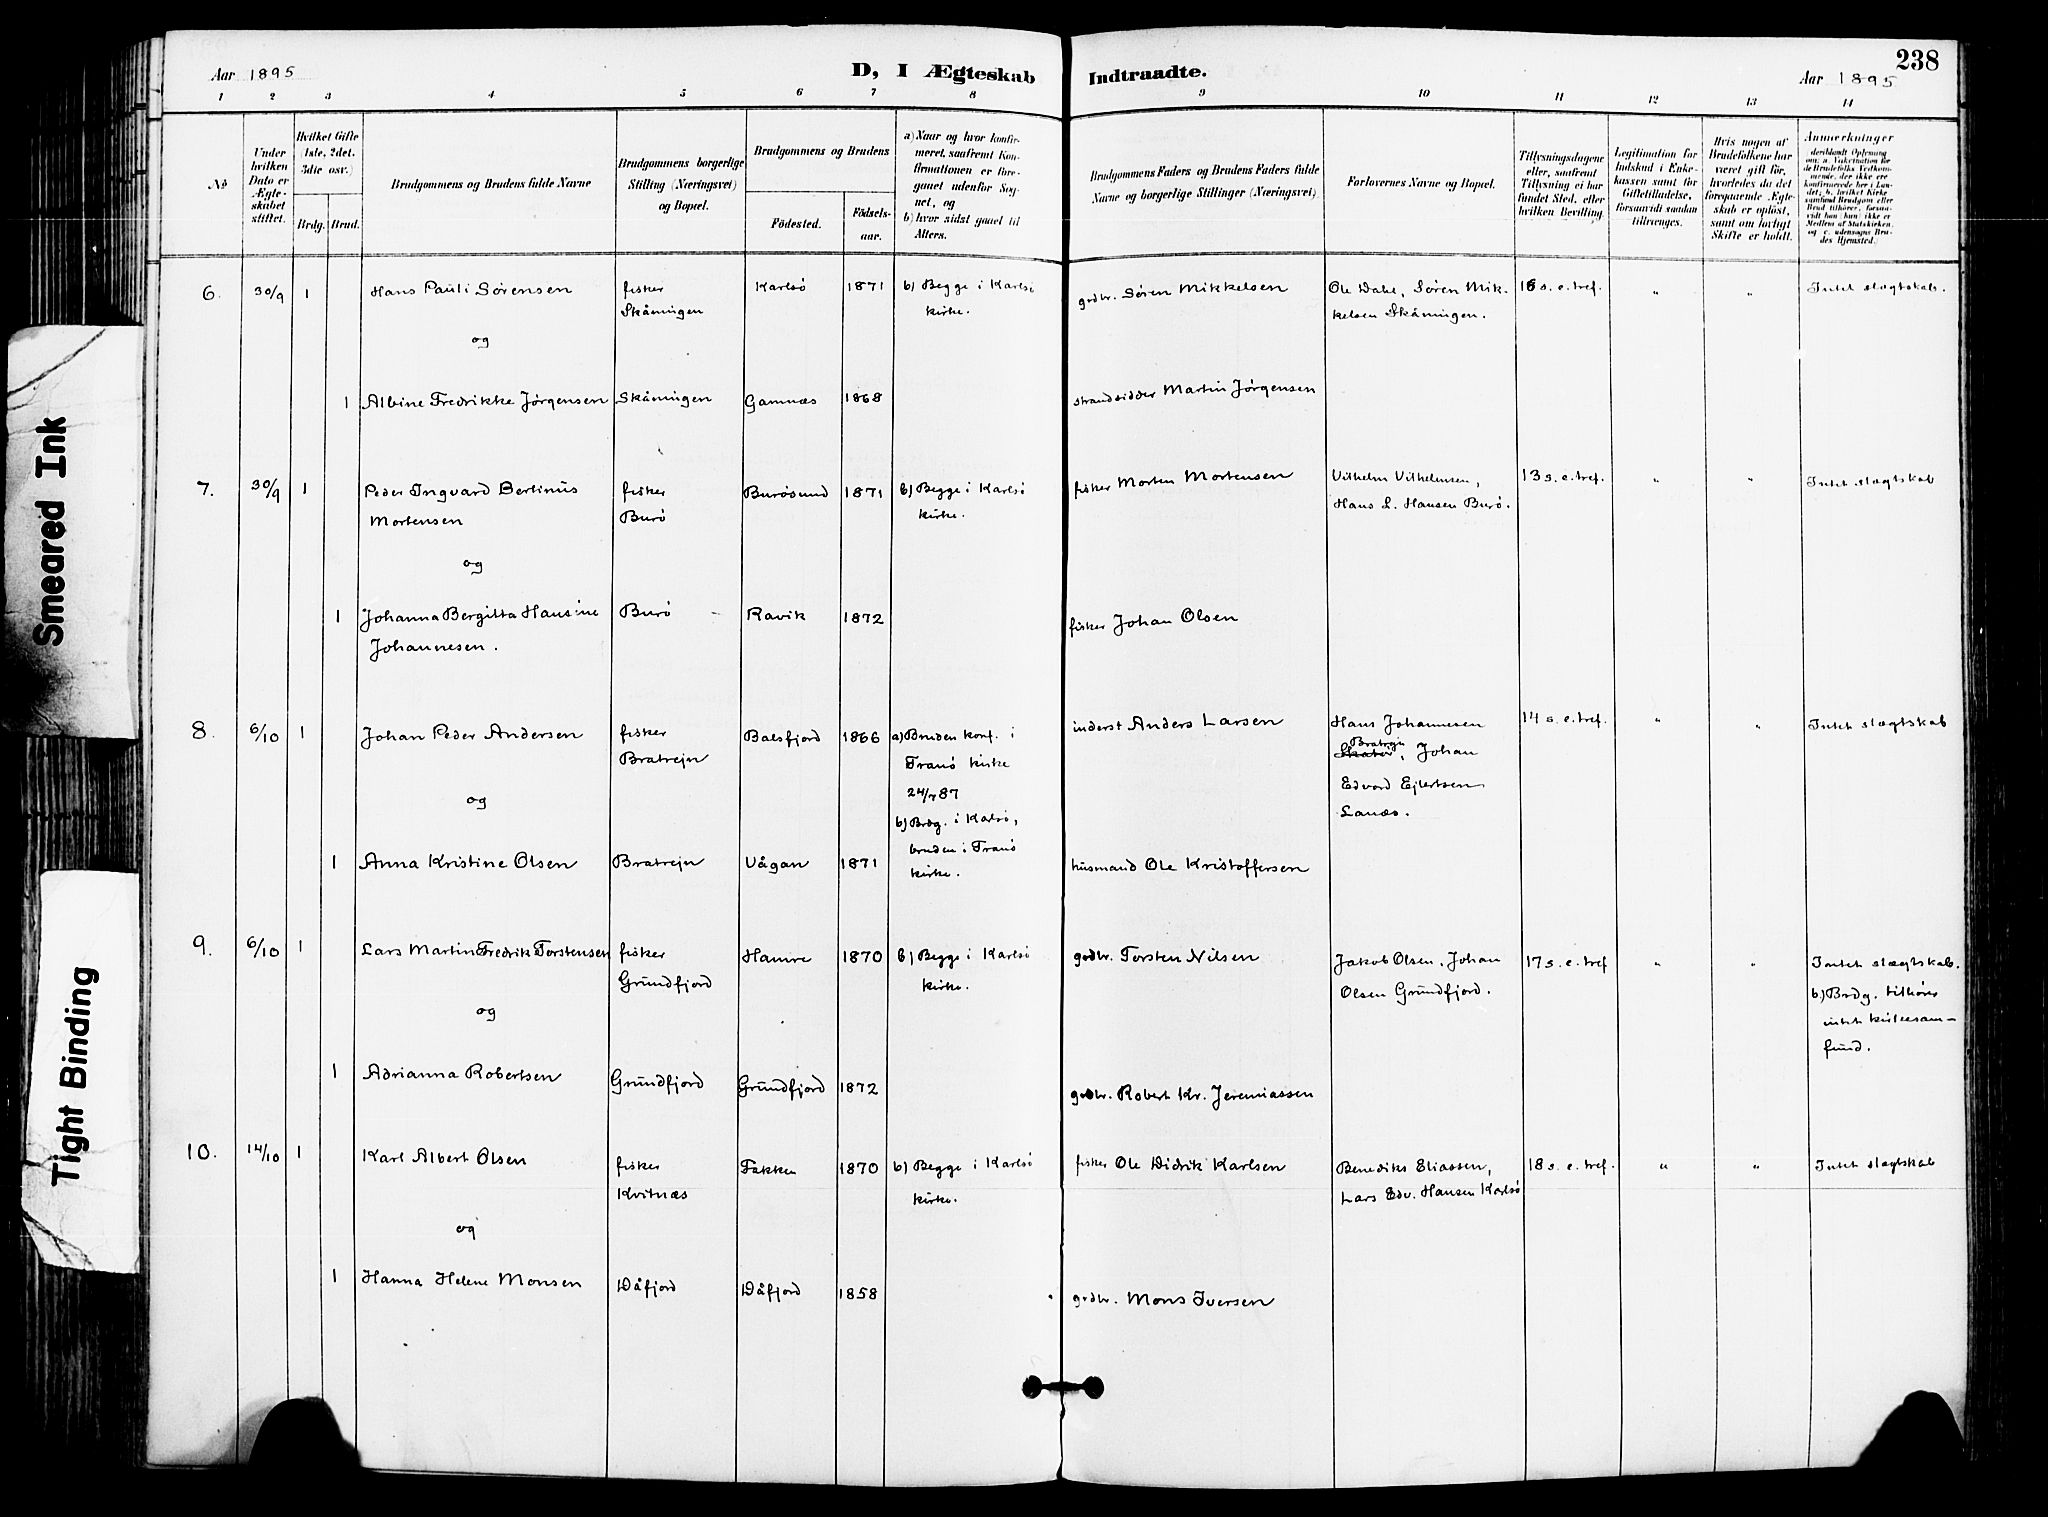 Aar 1895
D, I Ægteskab
Indtraadte.
238
Aar 1895
1 2 3 4 5 6 7 8 9 10 11 12 13 14
No
Under hvilken Dato er Ægteskabet stiftet.
Hvilket Gifte (1ste, 2det, 3die osv.)
Brdg. Brud.
Brudgommens og Brudens fulde Navne
Brudgommens borgerlige Stilling (Næringsvei) og Bopæl.
Brudgommens og Brudens
Födested.
Födselsaar.
a) Naar og hvor konfirmeret, saafremt Konfirmationen er foregaaet udenfor Sognet, og
b) hvor sidst gaaet til Alters.
Brudgommens Faders og Brudens Faders fulde Navne og borgerlige Stillinger (Næringsvei)
Forlovernes Navne og Bopæl.
Tillysningsdagene eller, saafremt Tillysning ei har fundet Sted, efter hvilken Bevilling.
Legitimation for Indskud i Enkekassen samt for Giftetilladelse, forsaavidt saadan tiltrænges.
Hvis nogen af Brudefolkene har været gift før, hvorledes da det foregaaende Ægteskab er opløst, samt om lovligt Skifte er holdt.
Anmerkninger
6. 30/9 1 Hans Pauli Sørensen fisker Karlsö 1871 b) Begge i Karlsö grdbr. Søren Mikkelsen Ole Dahl, Søren Mik- 16 s. e. tref. " " Intet slægtskab.
Skåningen kirke. kelsen Skåningen.
og
1 Albine Fredrikke Jörgensen Skåningen Gamnæs 1868 strandsidder Martin Jörgensen
7. 30/9 1 Peder Ingvard Bertinus fisker Burösund 1871 b) Begge i Karlsö fisker Morten Mortensen Vilhelm Vilhelmsen, 13 s. e. tref. " " Intet slægtskab
Mortensen Burö kirke. Hans L. Hansen Burö.
og
1 Johanna Bergitta Hansine Burö Ravik 1872 fisker Johan Olsen
Johannesen.
8. 6/10 1 Johan Peder Andersen fisker Balsfjord 1866 a) Bruden konf. i inderst Anders Larsen Hans Johannesen 14 s. e. tref. " " Intet slægtskab
Bratrejn Tranö kirke Bratrejn, Johan
24/7 87 Edvard Ejlertsen
og b) Brdg. i Karlsö, Lanæs.
bruden i Tranö
1 Anna Kristine Olsen Bratrejn Vågan 1871 kirke. husmand Ole Kristoffersen
9. 6/10 1 Lars Martin Fredrik Torstensen fisker Hamre 1870 b) Begge i Karlsö grdbr. Torsten Nilsen Jakob Olsen, Johan 17 s. e. tref " " Intet slægtskab.
Grundfjord kirke. Olsen Grundfjord. b) Brdg. tilhörer
og intet kirkesam-
fund.
1 Adrianna Robertsen Grundfjord Grundfjord 1872 grdbr. Robert Kr. Jeremiassen
10. 14/10 1 Karl Albert Olsen fisker Fakken 1870 b) Begge i Karlsö fisker Ole Didrik Karlsen Benediks Eliassen, 18 s. e. tref. " " Intet slægtskab
Kvitnæs kirke. Lars Edv. Hansen Karlsö
og
1 Hanna Helene Monsen Dåfjord Dåfjord 1858 grdbr. Mons Iversen
Smeared Ink
Tight Binding